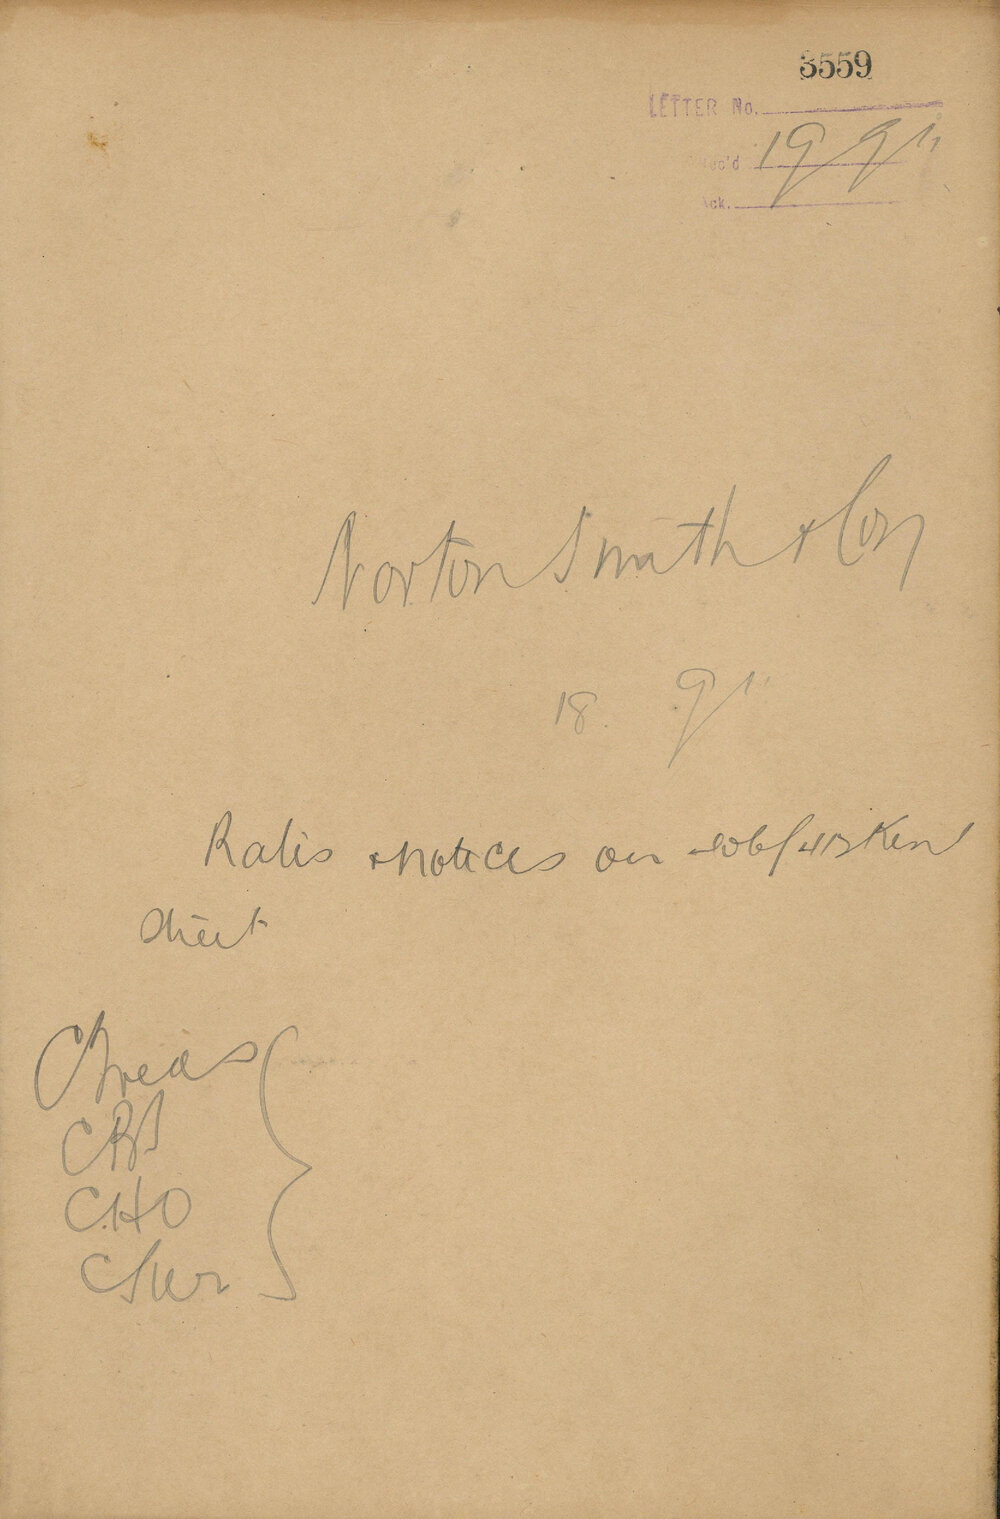 3559
LETTER No.
Rec'd 19 9 11
Ack.
Norton Smith & Coy
18. 9 11
Rates & notices on 406/413 Kent
Street
CTreas
CBS
C.H.O
CSur